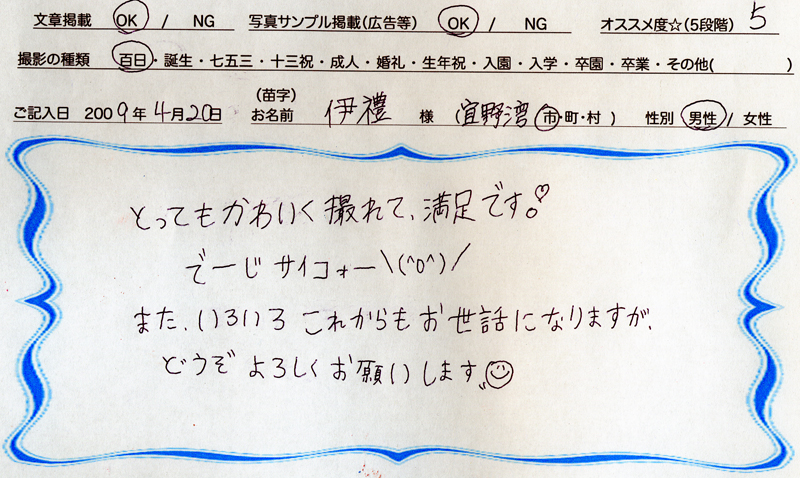 文章掲載 OK / NG 写真サンプル掲載(広告等) OK / NG オススメ度☆(5段階) 5
撮影の種類 百日・誕生・七五三・十三祝・成人・婚礼・生年祝・入園・入学・卒園・卒業・その他( )
ご記入日 2009年4月20日 (苗字)お名前 伊禮 様 (宜野湾 市・町・村 ) 性別 男性 / 女性
とってもかわいく撮れて、満足です。♡
でーじサイコォー\(^o^)/
また、いろいろこれからもお世話になりますが、
どうぞよろしくお願いします。☺